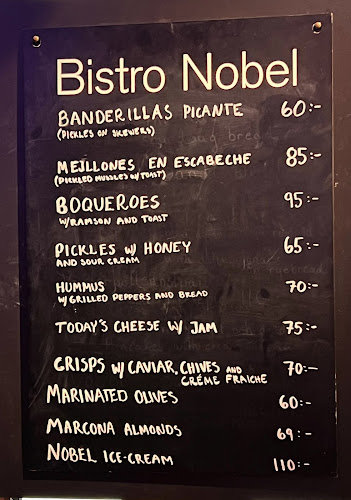 Bistro Nobel
BANDERILLAS PICANTE 60:-
(PICKLES ON SKEWERS)
MEJLLONES EN ESCABECHE 85:-
(PICKLED MUSSLES W/TOAST)
BOQUEROES 95:-
W/RAMSON AND TOAST
PICKLES W/ HONEY 65:-
AND SOUR CREAM
HUMMUS 70:-
W/GRILLED PEPPERS AND BREAD
TODAY'S CHEESE W/ JAM 75:-
CRISPS W/ CAVIAR, CHIVES AND 70:-
CRÉME FRAICHE
MARINATED OLIVES 60:-
MARCONA ALMONDS 69:-
NOBEL ICE-CREAM 110:-